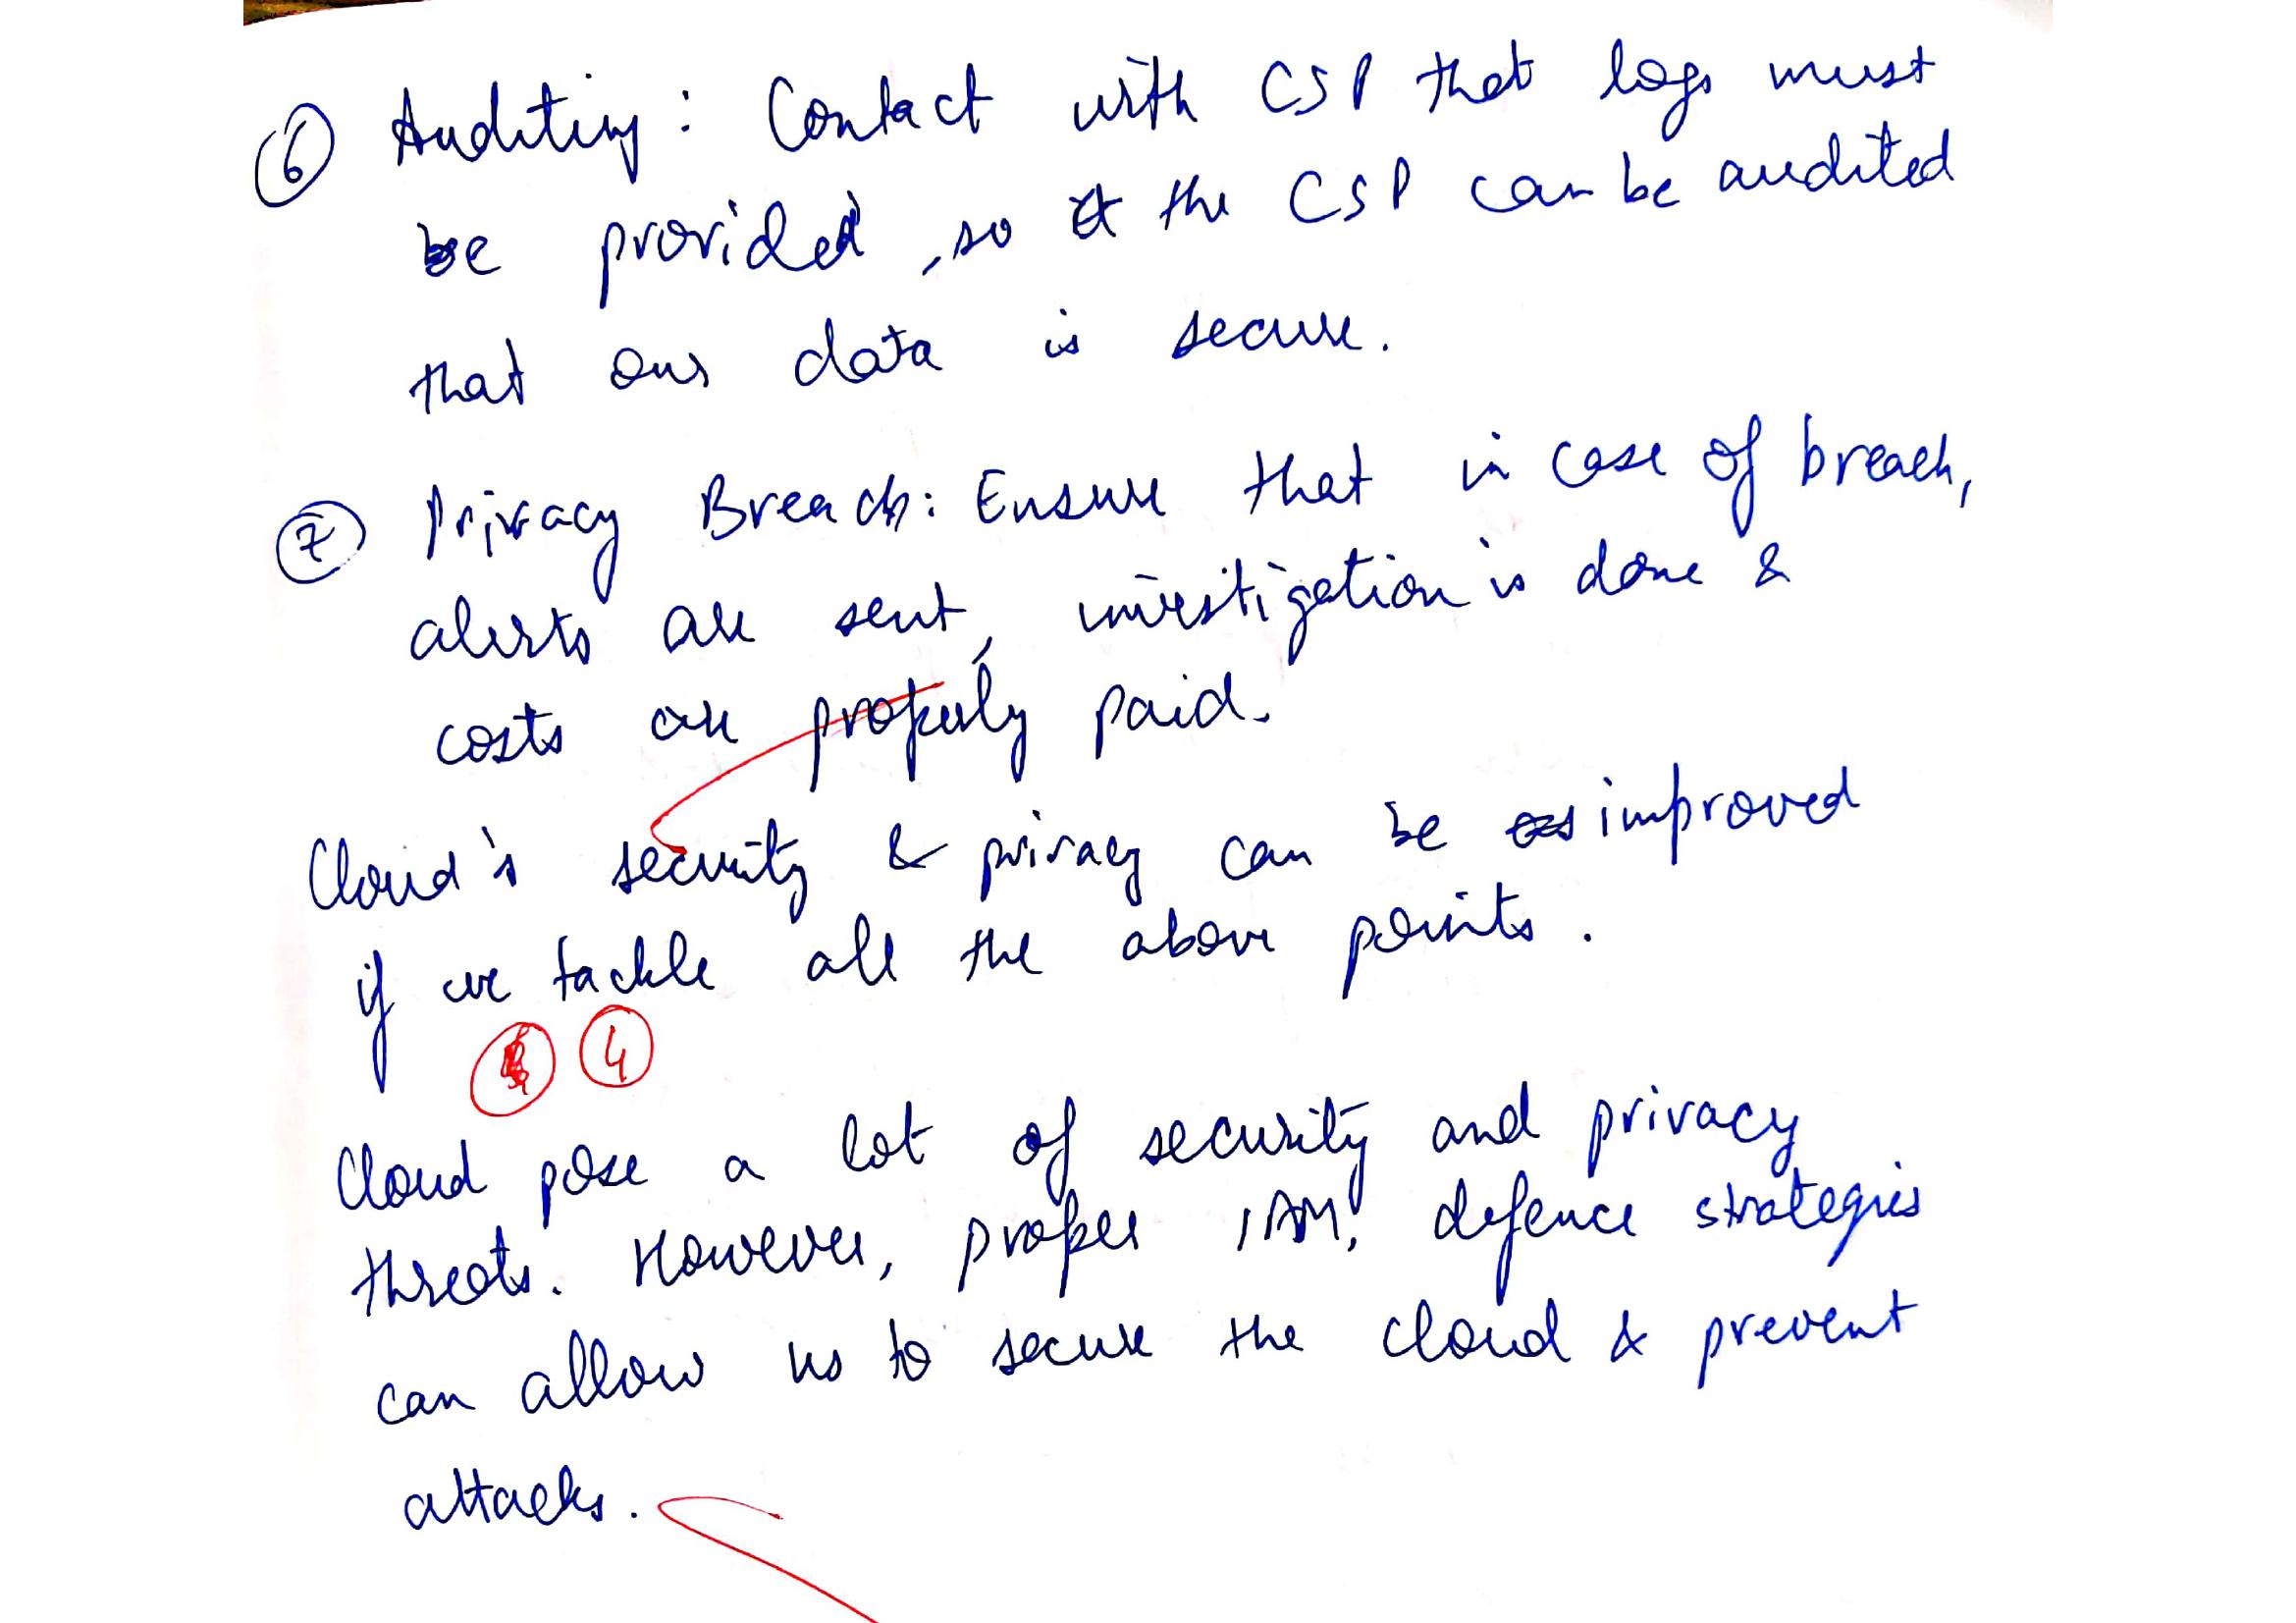 6 Auditing: Contact with CSP that logs must
be provided, so the CSP can be audited
that our data is secure.
7 Privacy Breach: Ensure that in case of breach,
alerts are sent, investigation is done &
costs are properly paid.
Cloud's security & privacy can be improved
if we tackle all the above points.
4
Cloud pose a lot of security and privacy
threats. However, proper IAM, defence strategies
can allow us to secure the cloud & prevent
attacks.